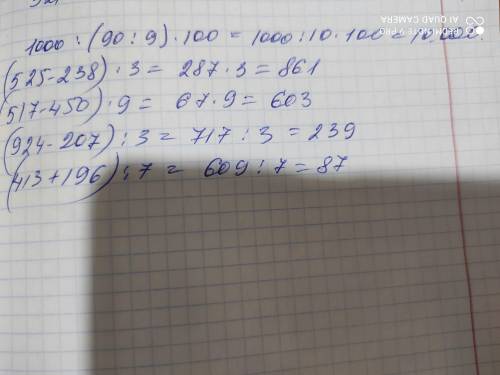 1000 : (90 : 9) · 100 = 1000 : 10 · 100 = 10.000.
(525-238) · 3 = 287 · 3 = 861
(517-450) · 9 = 67 · 9 = 603
(924-207) : 3 = 717 : 3 = 239
(413+196) : 7 = 609 : 7 = 87
REDMI NOTE 9 PRO
AI QUAD CAMERA